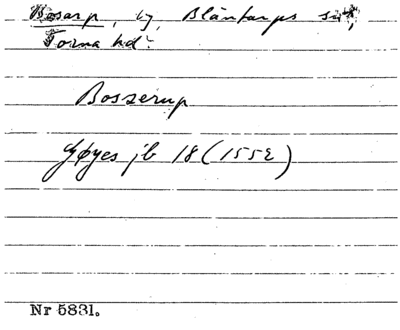 Bosarp, by, Blåntarps sn,
Torna hd:
Bosserup
Gøyes jb 18 (1552)
Nr 5831.